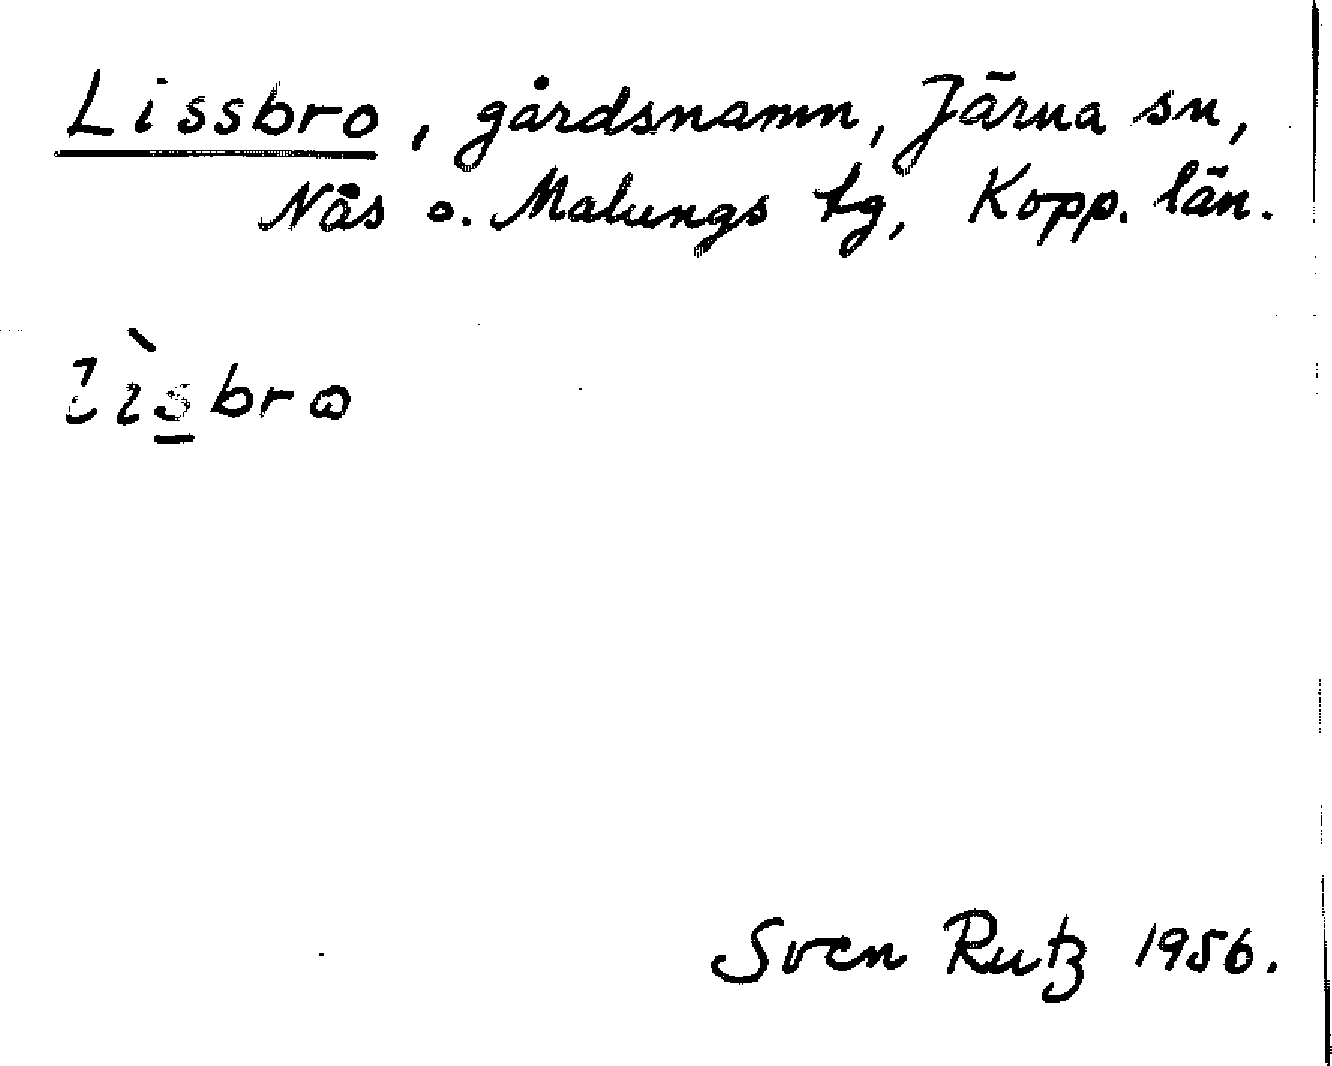 Lissbro, gårdsnamn, Järna sn,
Nås o. Malungs tg, Kopp. län.
Sven Rutz 1956.